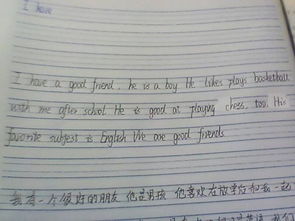 I have
I have a good friend. he is a boy. He likes plays basketball
with me after schol. He is good at playing chess, too. His
favorite subject is English We are good friends
我有一个很好的朋友 他是男孩 他喜欢在放学后和我一起